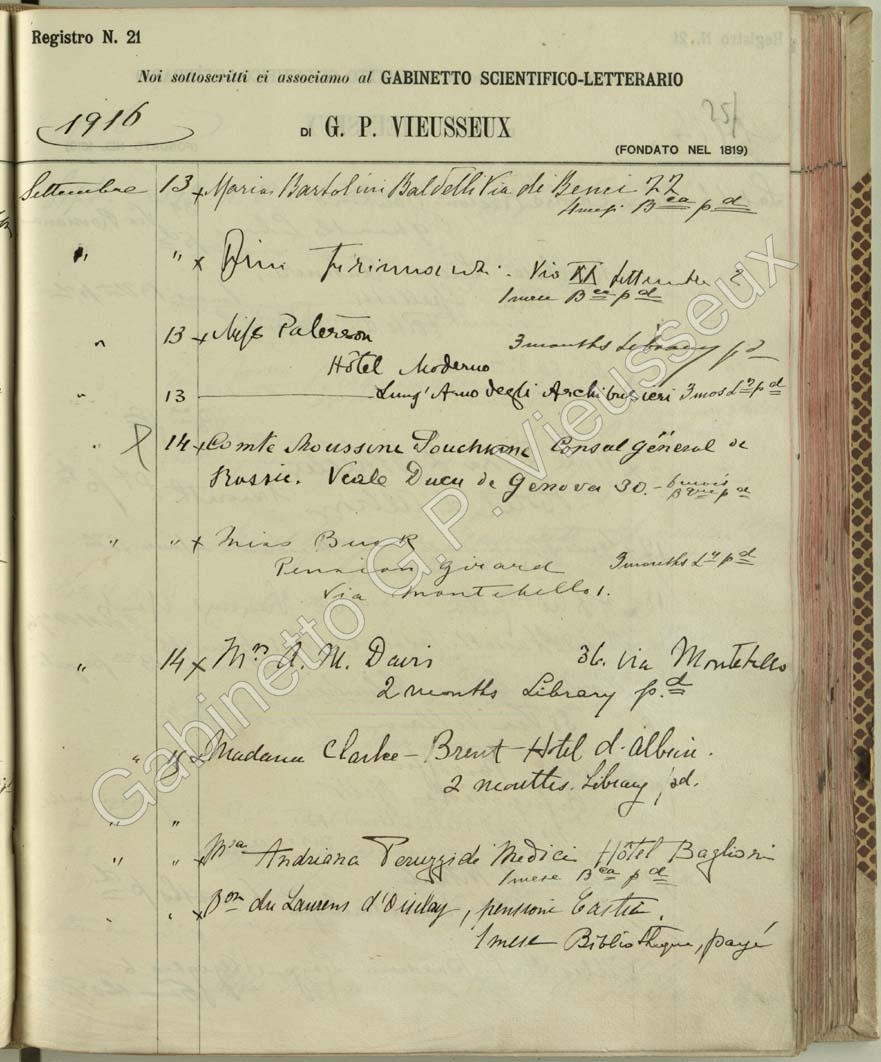 Registro N. 21
Noi sottoscritti ci associamo al GABINETTO SCIENTIFICO-LETTERARIO
1916
251
DI G. P. VIEUSSEUX
(FONDATO NEL 1819)
Settembre 13 x Maria Bartolini Baldelli Via de Benci 22
Bca pd
" " x Via XX Settembre 2
1 mese Bca pd
" 13 x Miss Paterson 3 months Library pd
Hôtel Moderno
" 13 Lung' Arno degli Archibusieri 3 mos Ly pd
" 14 x Comte Moussine Pouchkine Consul général de
Russie. Viale Duca de Genova 30. - 6 mois
Bque pd
" " x Miss Buok
Pension Girard 3 months Ly pd
Via Montebello 1.
" 14 x Mrs A. M. Davis 36. Via Montebello
2 months Library pd
" 15 x Madame Clarke - Brent - Hotel d'Albion.
2 months. Library pd.
" "
" " x Andriana Peruzzi de Medici Hôtel Baglioni
1 mese Bca pd
" " x Bon du Laurens d'Oiselay, pensione
1 mese Bibliothèque, payé
Gabinetto G. P. Vieusseux